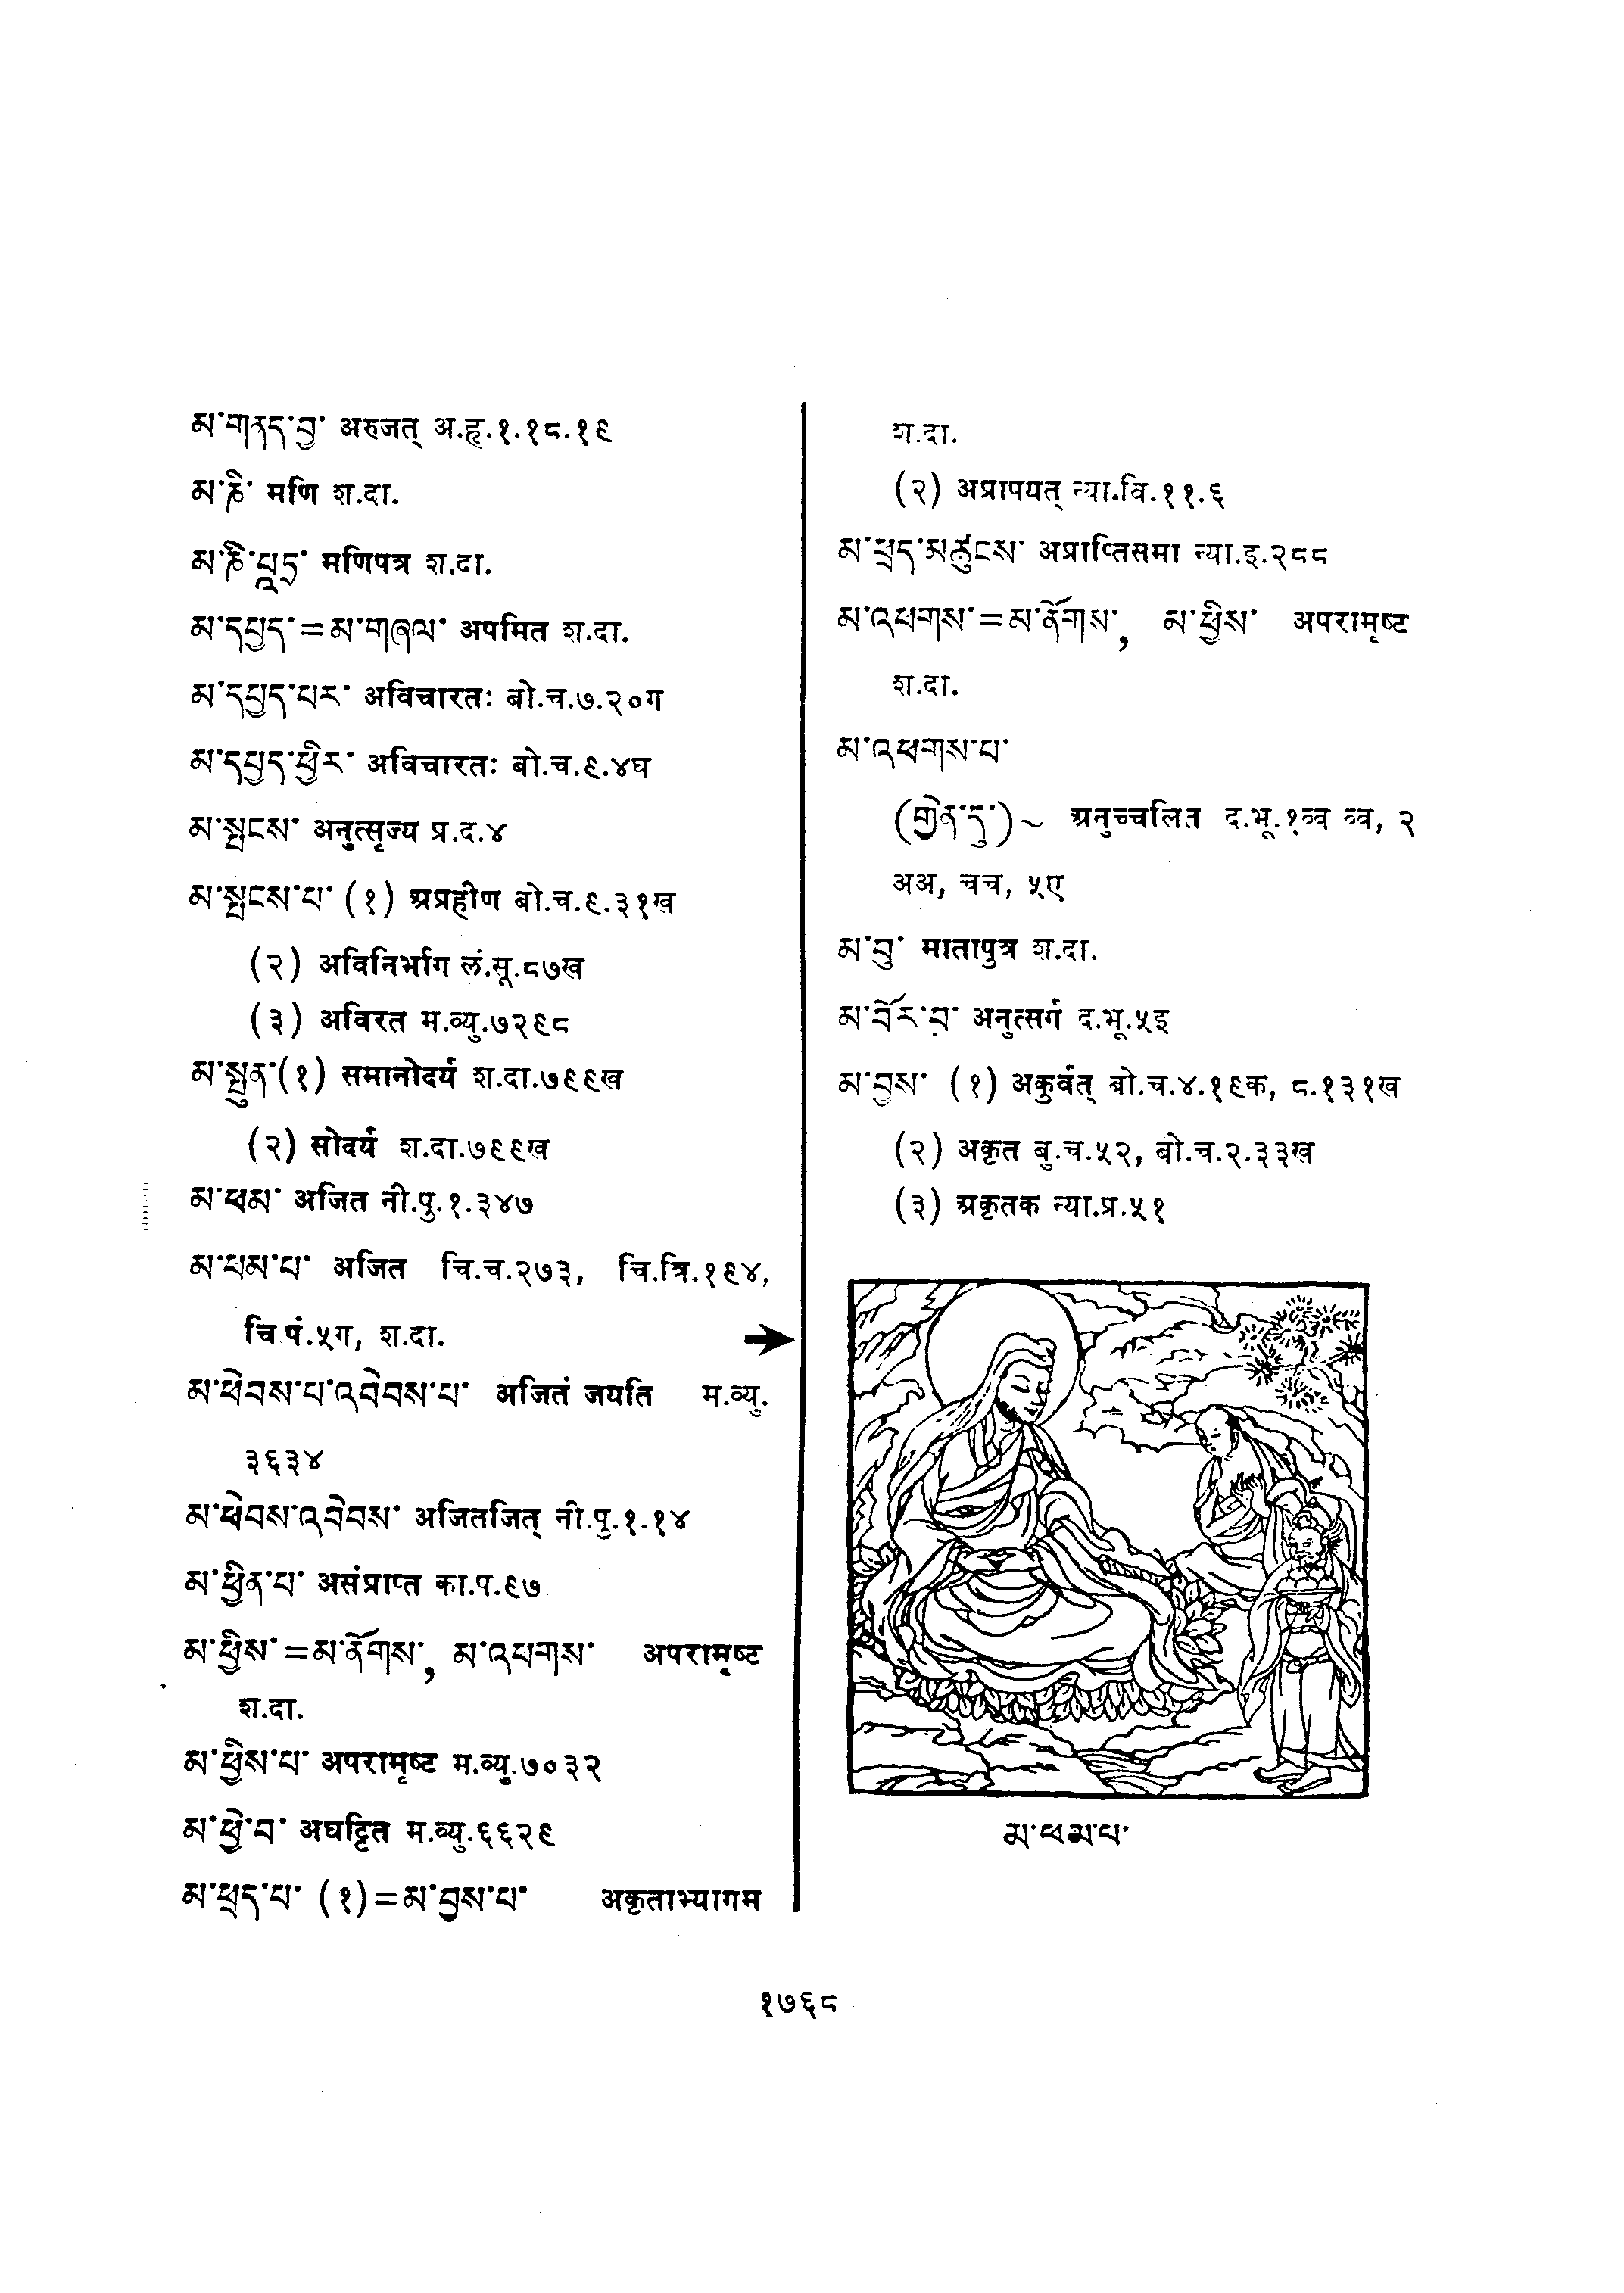 མ་གནད་བྱ་ अरुजत् अ.हृ.१.१८.१९
མ་ཎི་ मणि श.दा.
མ་ཎི་པཱཏྲ་ मणिपत्र श.दा.
མ་དཔྱད་=མ་གཞལ་ अपमित श.दा.
མ་དཔྱད་པར་ अविचारतः बो.च.७.२०ग
མ་དཔྱད་ཕྱིར་ अविचारतः बो.च.९.४घ
མ་སྤངས་ अनुत्सृज्य प्र.द.४
མ་སྤངས་པ་ (१) अप्रहीण बो.च.९.३१ख
(२) अविनिर्भाग लं.सू.८७ख
(३) अविरत म.व्यु.७२९८
མ་སྤུན་(१) समानोदर्य श.दा.७९९ख
(२) सोदर्य श.दा.७९९ख
མ་ཕམ་ अजित नी.पु.१.३४७
མ་ཕམ་པ་ अजित चि.च.२७३, चि.त्रि.१९४,
चि पं.५ग, श.दा. ➔
མ་ཕེབས་པ་འབེབས་པ་ अजितं जयति म.व्यु.
३६३४
མ་ཕེབས་འབེབས་ अजितजित् नी.पु.१.१४
མ་ཕྱིན་པ་ असंप्राप्त का.प.९७
མ་ཕྱིས་=མ་ནོགས་, མ་འཕགས་ अपरामृष्ट
श.दा.
མ་ཕྱིས་པ་ अपरामृष्ट म.व्यु.७०३२
མ་ཕྱེ་བ་ अघट्टित म.व्यु.६६२९
མ་ཕྲད་པ་ (१)=མ་བྱས་པ་ अकृताभ्यागम
श.दा.
(२) अप्रापयत् न्या.वि.११.६
མ་ཕྲད་མཚུངས་ अप्राप्तिसमा न्या.इ.२८८
མ་འཕགས་=མ་ནོགས་, མ་ཕྱིས་ अपरामृष्ट
श.दा.
མ་འཕགས་པ་
(གྱེན་དུ་)~ अनुच्चलित द.भू.१व्व व्व, २
अअ, चच, ५ए
མ་བུ་ मातापुत्र श.दा.
མ་བོར་བ་ अनुत्सर्ग द.भू.५इ
མ་བྱས་ (१) अकुर्वत् बो.च.४.१९क, ८.१३१ख
(२) अकृत बु.च.५२, बो.च.२.३३ख
(३) अकृतक न्या.प्र.५१
མ་ཕམ་པ་
१७६८